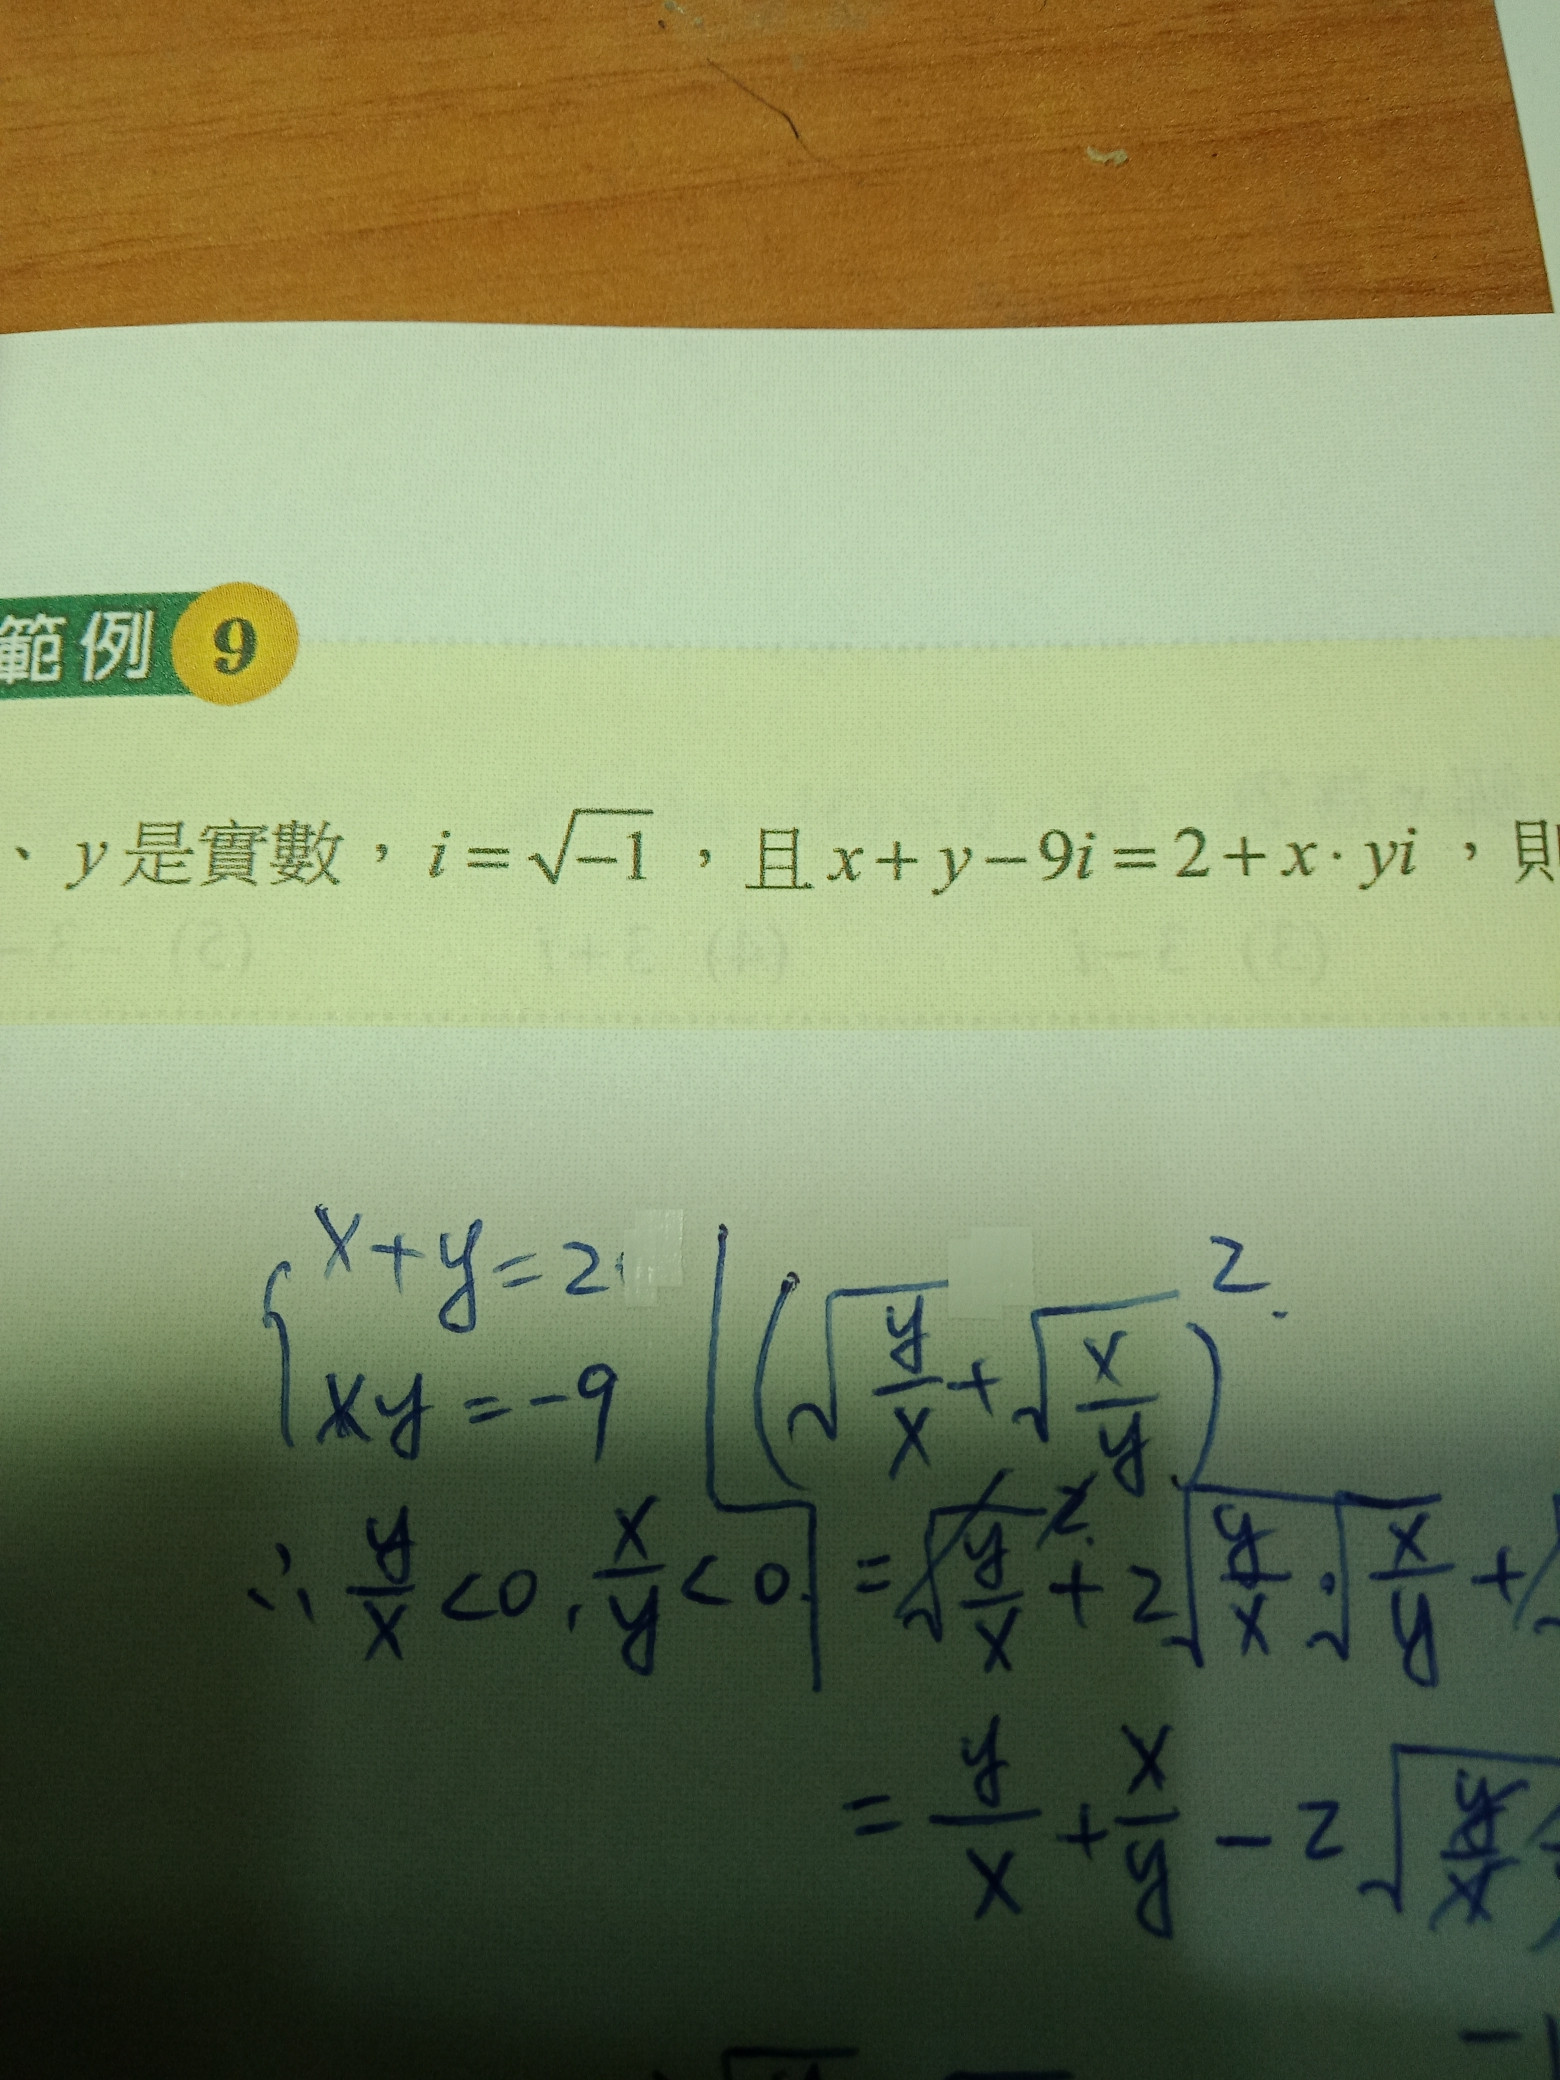 範例 9
、y是實數，i=√-1，且x+y-9i=2+x·yi，則
x+y=2
xy=-9
∴ y/x <0, x/y <0
(√(y/x)+√(x/y))²
=√(y/x)²+2√(y/x)·√(x/y)+
=y/x+x/y-2√(y/x